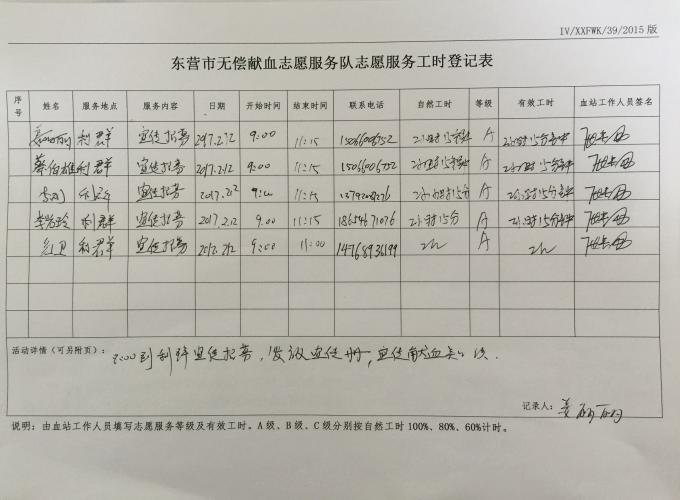 IV/XXFWK/39/2015 版
东营市无偿献血志愿服务队志愿服务工时登记表
序号 姓名 服务地点 服务内容 日期 开始时间 结束时间 联系电话 自然工时 等级 有效工时 血站工作人员签名
利群 宣传招募 2017.2.12 9:00 11:15 2小时15分钟 A 2小时15分钟
蔡伯雄 利群 宣传招募 2017.2.12 9:00 11:15 15066006752 2小时15分钟 A 2小时15分钟
利群 宣传招募 2017.2.12 9:00 11:15 2小时15分 A 2小时15分钟
利群 宣传招募 2017.2.12 9.00 11:15 18654671076 2小时15分 A 2小时15分钟
红卫 利群 宣传招募 2017.2.12 9:00 11:00 14768936199 2h A 2h
活动详情(可另附页): 9:00到利群宣传招募,发放宣传册,宣传献血知识.
记录人: 姜丽丽
说明:由血站工作人员填写志愿服务等级及有效工时。A级、B级、C级分别按自然工时100%、80%、60%计时。